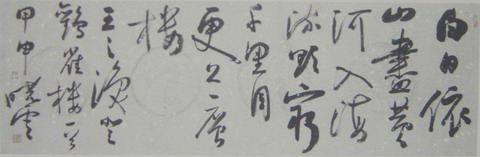 白日依
山盡黄
河入海
流欲窮
千里目
更上一層
樓
王之渙登
鸛雀樓一首
甲申曉雲